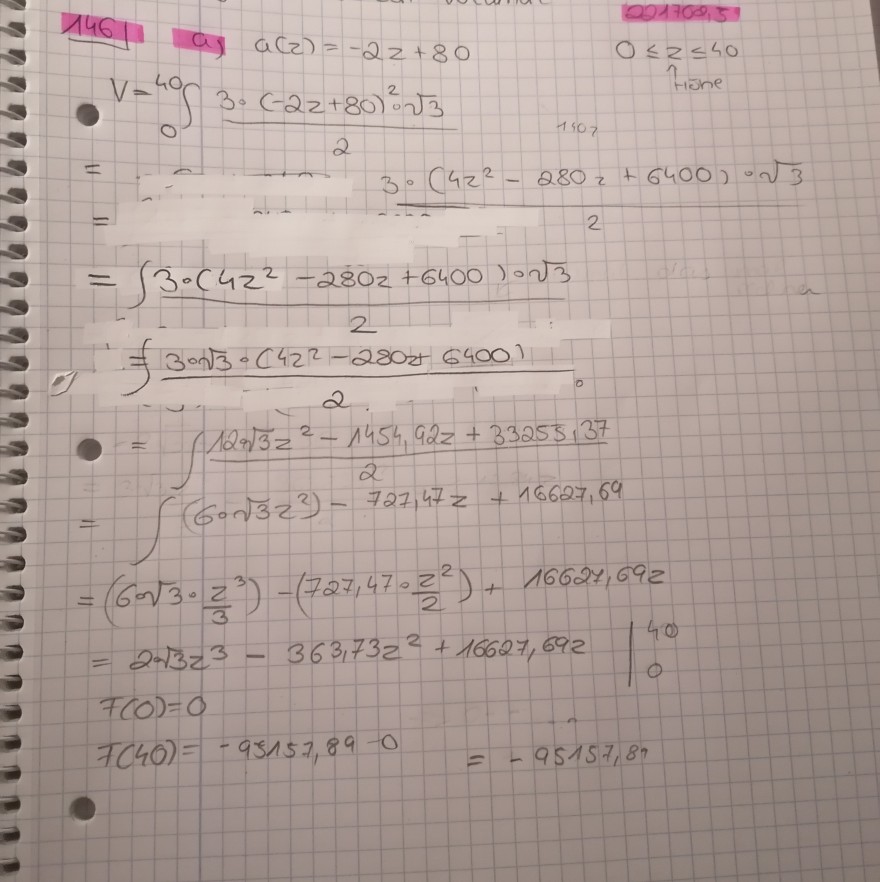 146) a) a(z) = -2z + 80 0 ≤ z ≤ 40
↑ Höhe
V = ⁴⁰∫₀ 3·(-2z+80)²·√3 / 2
= 3·(4z² - 280z + 6400)·√3 / 2
=
= ∫ 3·(4z² - 280z + 6400)·√3 / 2
= ∫ 3·√3·(4z² - 280z + 6400) / 2
= ∫ 12·√3z² - 1454,92z + 33255,37 / 2
= ∫ (6·√3z²) - 727,47z + 16627,69
= (6·√3·z³/3) - (727,47·z²/2) + 16627,69z
= 2·√3z³ - 363,73z² + 16627,69z |⁴⁰₀
F(0) = 0
F(40) = -95157,89 - 0 = -95157,89